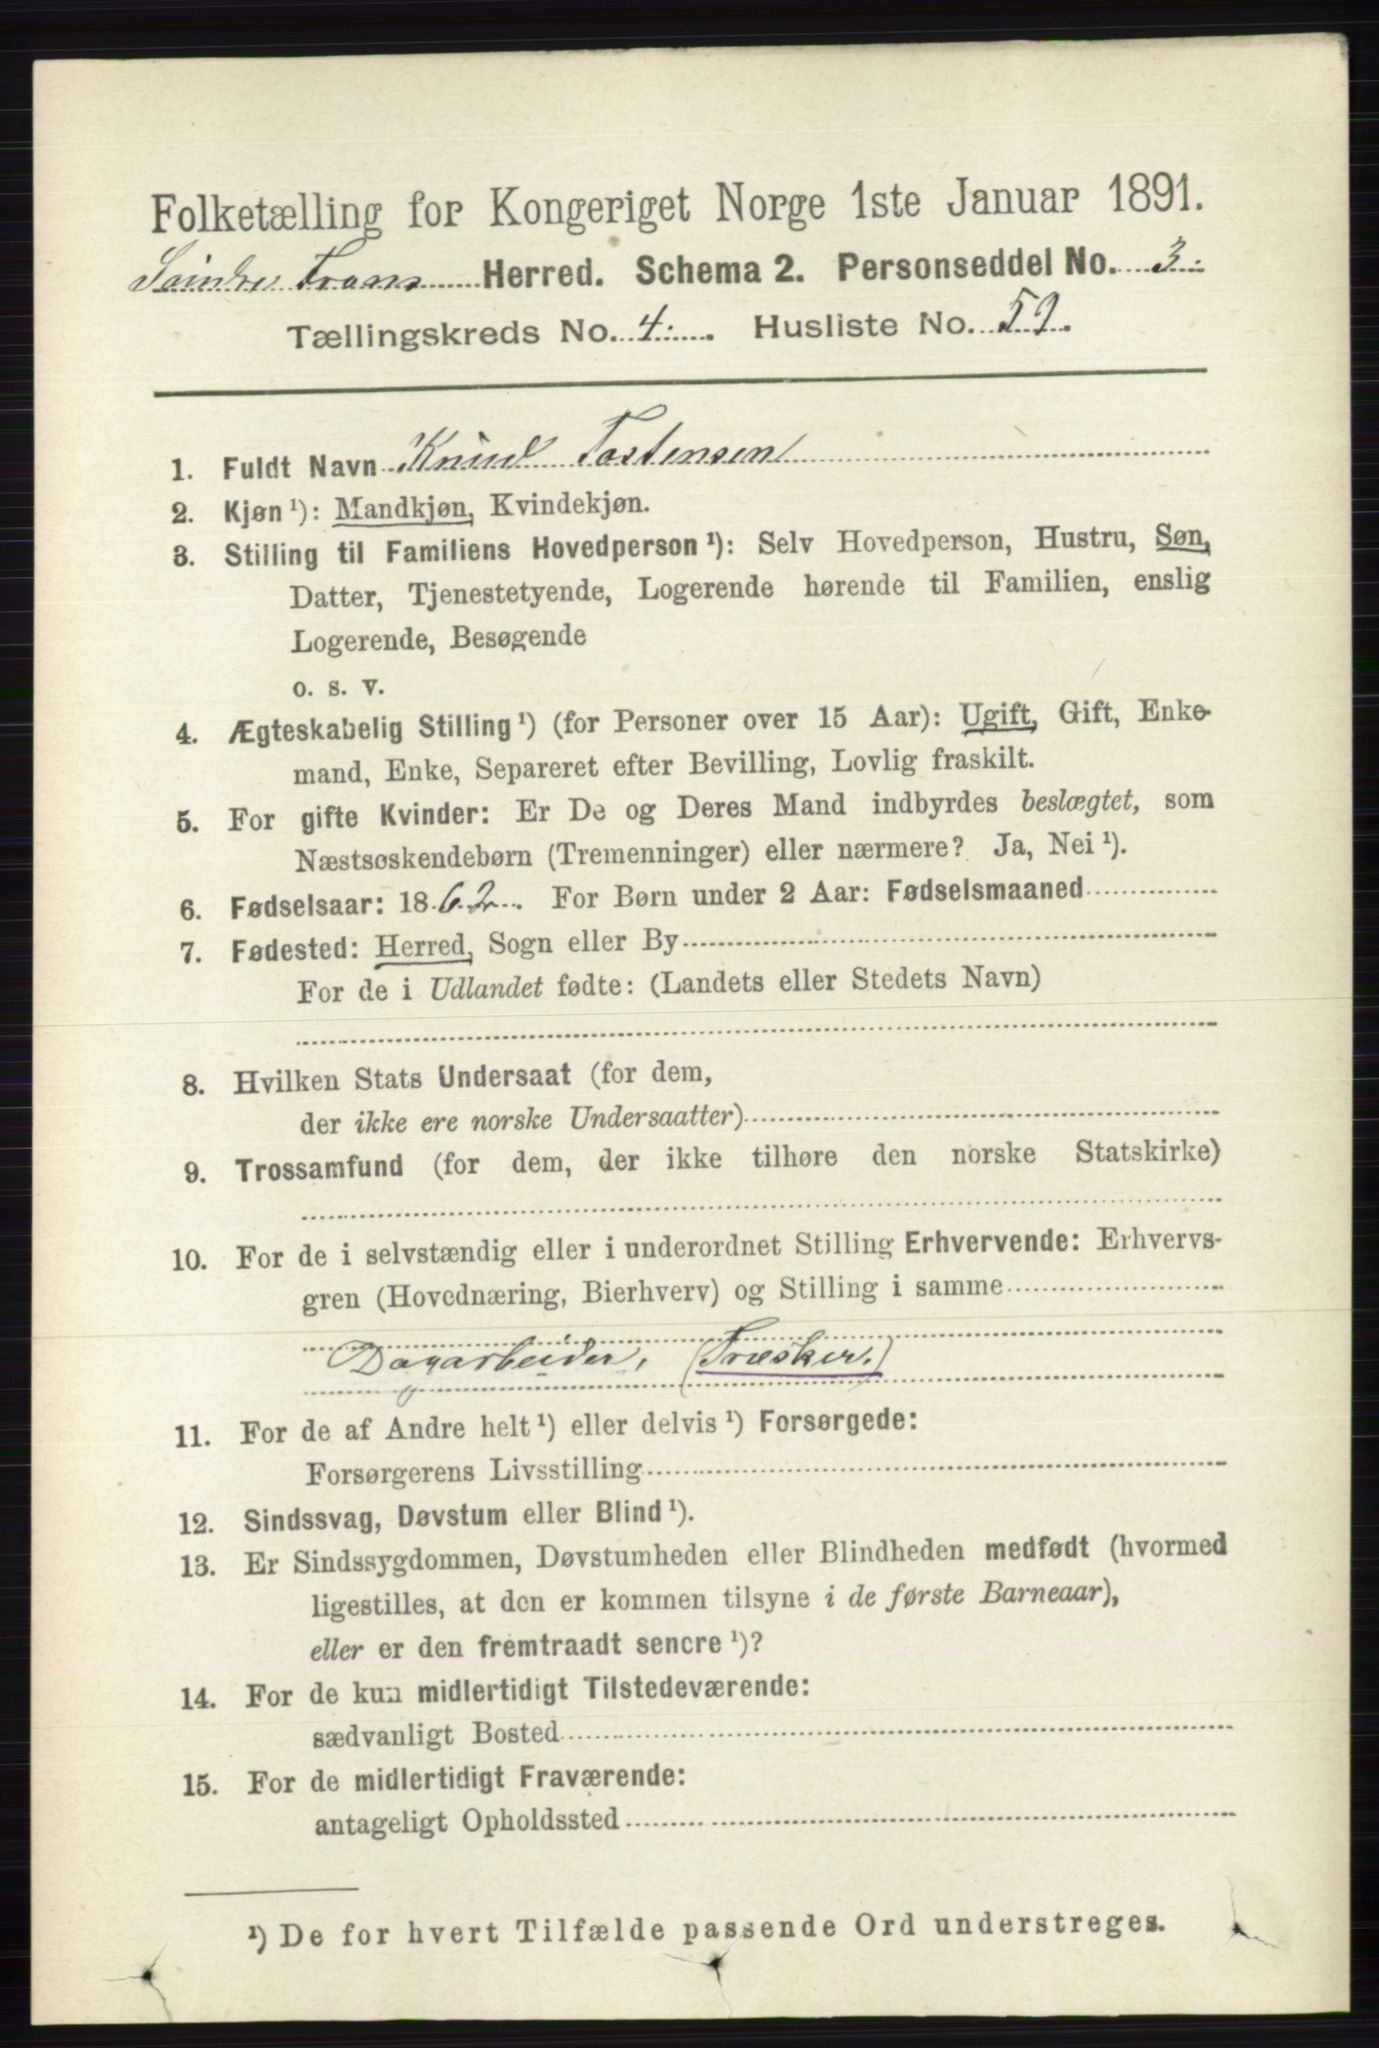 Folketælling for Kongeriget Norge 1ste Januar 1891.
Søndre Trøns Herred. Schema 2. Personseddel No. 3.
Tællingskreds No. 4. Husliste No. 59.
1. Fuldt Navn Knud Tostensen
2. Kjøn ¹): Mandkjøn, Kvindekjøn.
3. Stilling til Familiens Hovedperson ¹): Selv Hovedperson, Hustru, Søn,
Datter, Tjenestetyende, Logerende hørende til Familien, enslig
Logerende, Besøgende
o. s. v.
4. Ægteskabelig Stilling ¹) (for Personer over 15 Aar): Ugift, Gift, Enke-
mand, Enke, Separeret efter Bevilling, Lovlig fraskilt.
5. For gifte Kvinder: Er De og Deres Mand indbyrdes beslægtet, som
Næstsøskendebørn (Tremenninger) eller nærmere? Ja, Nei ¹).
6. Fødselsaar: 1862. For Børn under 2 Aar: Fødselsmaaned
7. Fødested: Herred, Sogn eller By
For de i Udlandet fødte: (Landets eller Stedets Navn)
8. Hvilken Stats Undersaat (for dem,
der ikke ere norske Undersaatter)
9. Trossamfund (for dem, der ikke tilhøre den norske Statskirke)
10. For de i selvstændig eller i underordnet Stilling Erhvervende: Erhvervs-
gren (Hovednæring, Bierhverv) og Stilling i samme
Dagarbeider, (Træsker.)
11. For de af Andre helt ¹) eller delvis ¹) Forsørgede:
Forsørgerens Livsstilling
12. Sindssvag, Døvstum eller Blind ¹).
13. Er Sindssygdommen, Døvstumheden eller Blindheden medfødt (hvormed
ligestilles, at den er kommen tilsyne i de første Barneaar),
eller er den fremtraadt senere ¹)?
14. For de kun midlertidigt Tilstedeværende:
sædvanligt Bosted
15. For de midlertidigt Fraværende:
antageligt Opholdssted
¹) De for hvert Tilfælde passende Ord understreges.